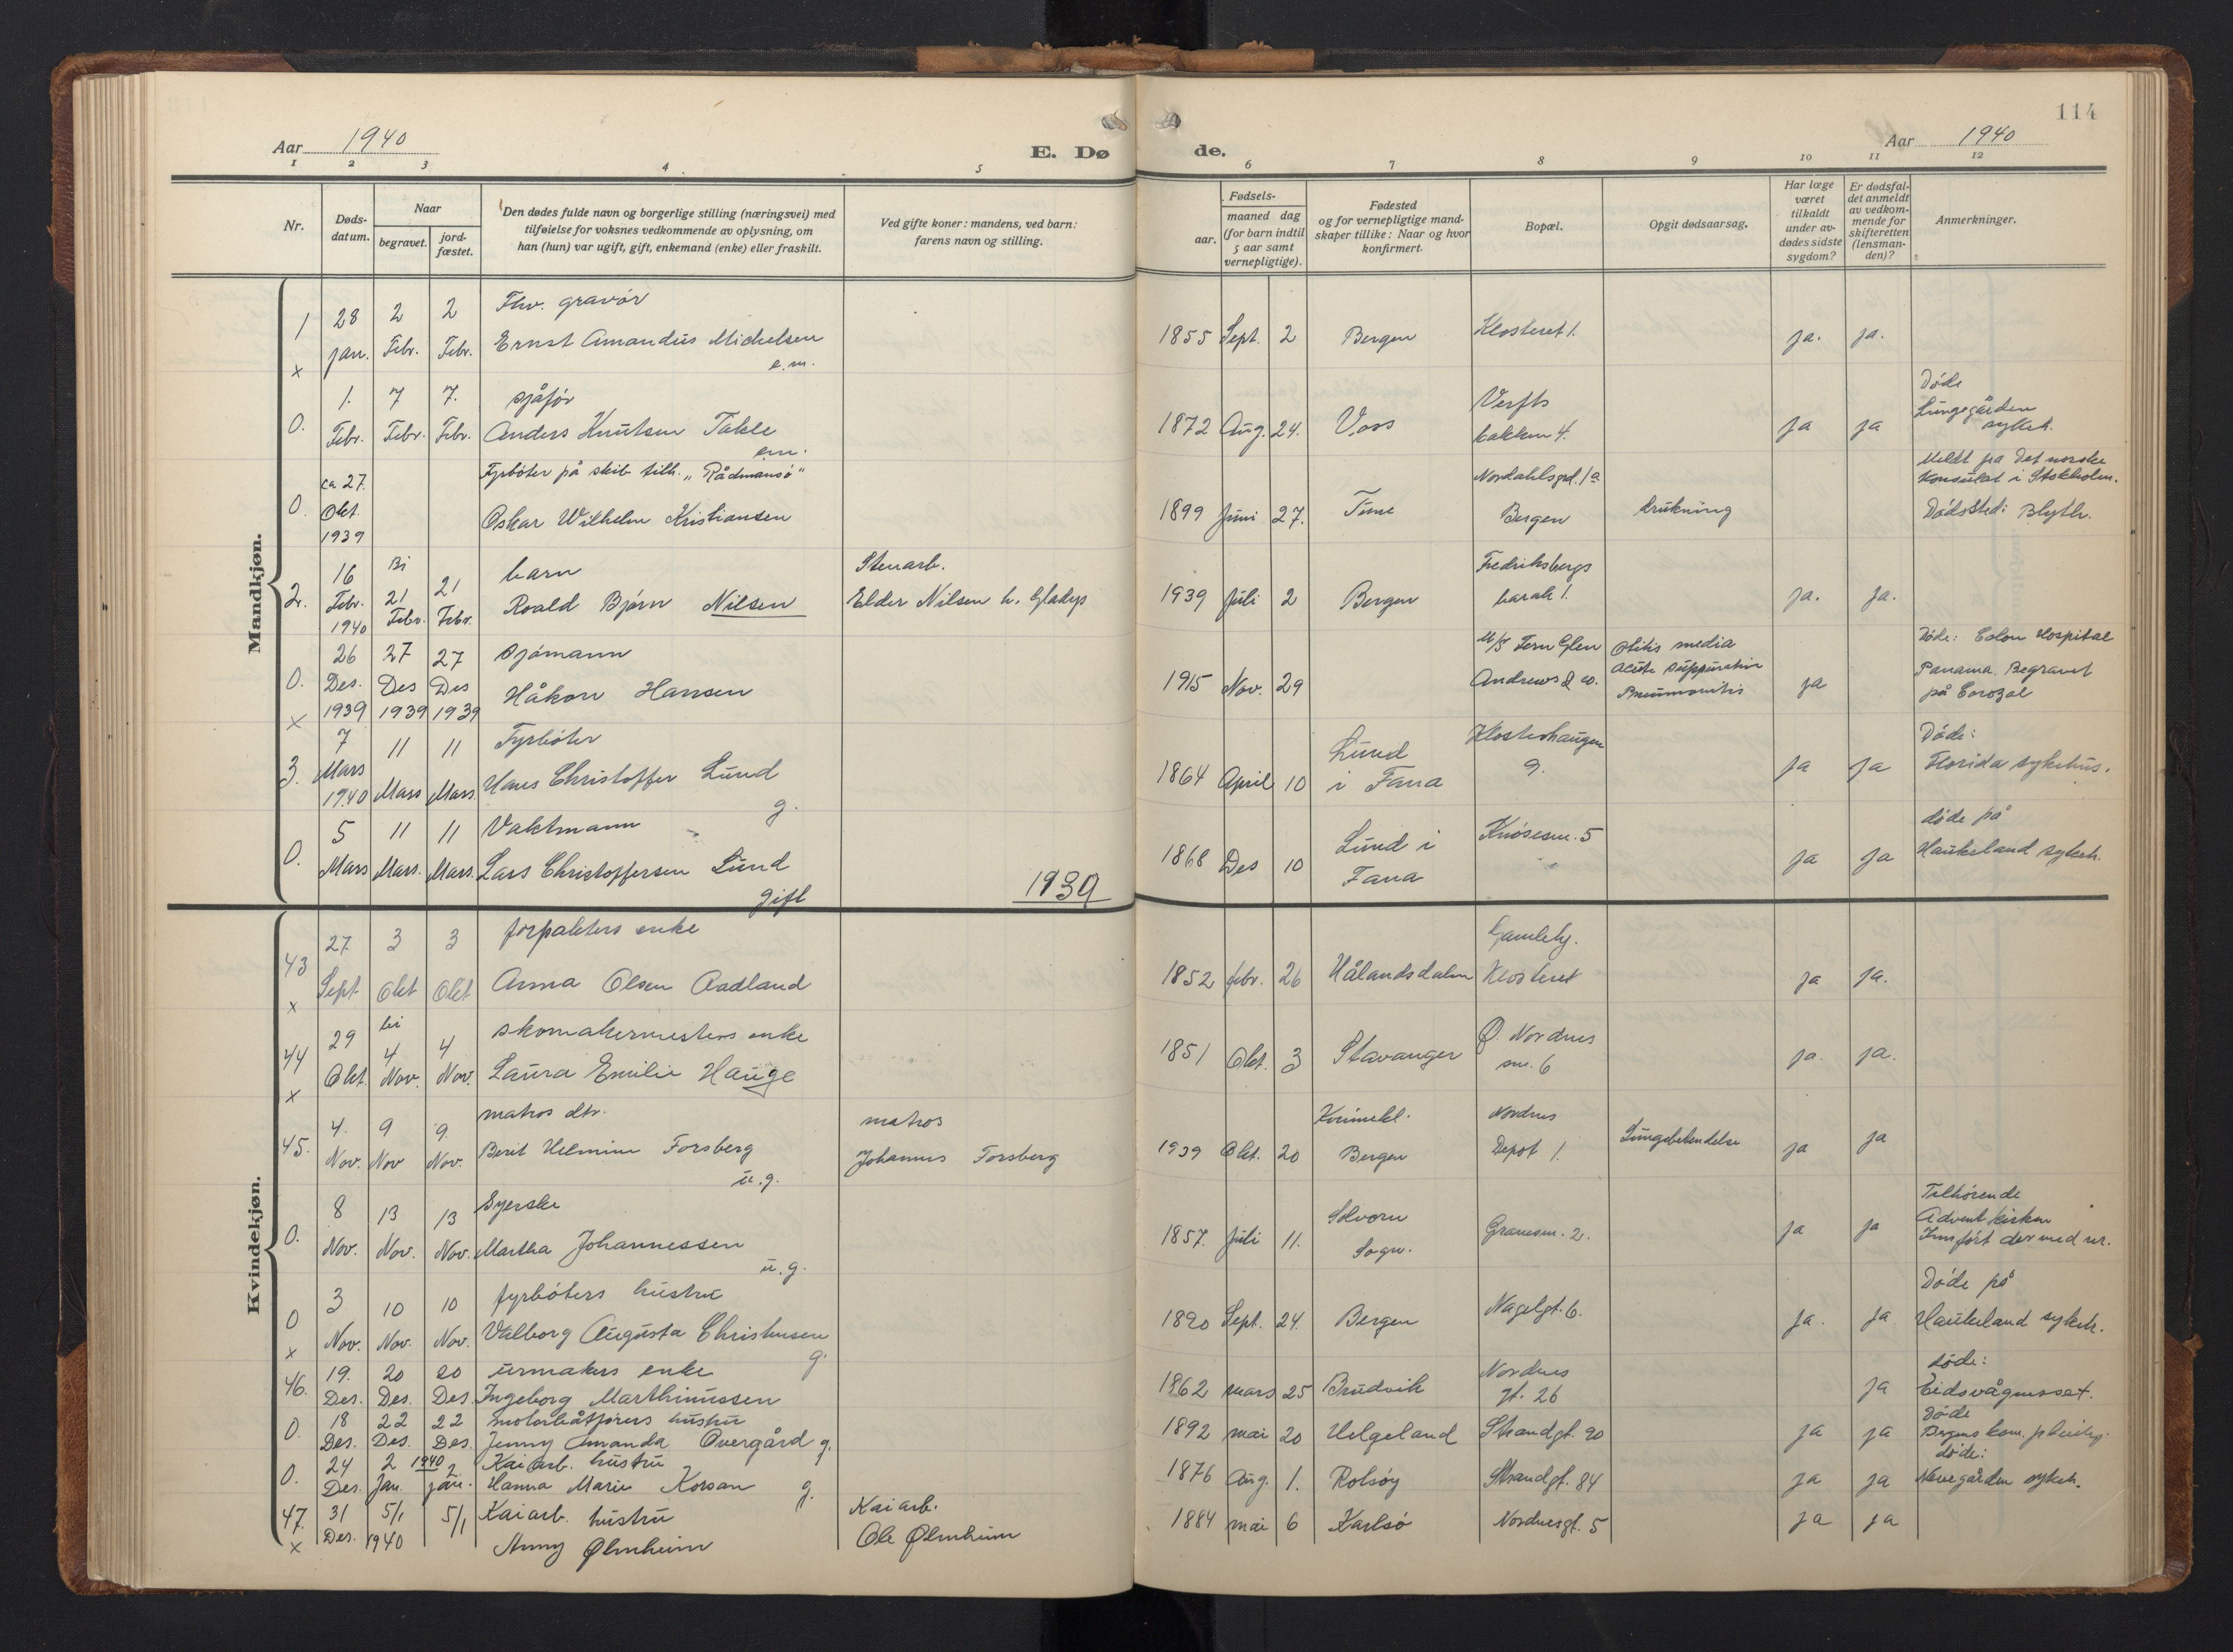 114
Aar 1940
E. Døde.
Aar 1940
1 2 3 4 5 6 7 8 9 10 11 12
Nr.
Døds-datum.
Naar
begravet.
jord-fæstet.
Den dødes fulde navn og borgerlige stilling (næringsvei) med
tilføielse for voksnes vedkommende av oplysning, om
han (hun) var ugift, gift, enkemand (enke) eller fraskilt.
Ved gifte koner: mandens, ved barn:
farens navn og stilling.
Fødsels-
aar.
maaned dag
(for barn indtil
5 aar samt
vernepligtige).
Fødested
og for vernepligtige mand-
skaper tillike: Naar og hvor
konfirmert.
Bopæl.
Opgit dødsaarsag.
Har læge
været
tilkaldt
under av-
dødes sidste
sygdom?
Er dødsfal-
det anmeldt
av vedkom-
mende for
skifteretten
(lensman-
den)?
Anmerkninger.
Mandkjøn.
1 x 28 jan. 2 Febr. 2 Febr. Fhv. gravør
Ernst Amandus Michelsen
e.m.
1855 Sept. 2 Bergen Klosteret 1. ja. ja.
0. 1. Febr. 7 Febr. 7. Febr. sjåfør
Anders Knutsen Takle
em.
1872 Aug. 24. Voss Verfts
bakken 4. ja ja Døde
Lungegården
sykeh.
0. ca 27. Okt. 1939 Fyrbøter på skib tilh. "Rådmansö"
Oskar Wilhelm Kristiansen
1899 Juni 27. Time Nordahlsgrd. 1a
Bergen drukning Meldt fra Det norske
Konsulat i Stokholm.
Dødssted: Blyth.
2. 16 Febr. 1940 Bi 21 Febr. 21 Febr. barn
Roald Bjørn Nilsen
Stenarb.
Elder Nilsen h. Gladys
1939 Juli 2 Bergen Fredriksbergs
barak 1. ja. ja.
0. x 26 Des. 1939 27 Des 1939 27 Des 1939 Sjømann
Håkon Hansen
1915 Nov. 29 M/S Fern Glen
Andrews & co. Otitis media
acute suppurative
Pneumonitis ja Døde: Colon Hospital
Panama. Begravet
på Corozal
3. 7 Mars 1940 11 Mars 11 Mars. Fyrbøter
Hans Christoffer Lund
g.
1864 April 10 Lund
i Fana Klosterhaugen
9. ja ja Døde:
Florida sykehus.
0. 5 Mars 11 Mars. 11 Mars. Vaktmann
Lars Christoffersen Lund
gift
1868 Des 10 Lund i
Fana Knøsesm. 5 ja ja døde på
Haukeland sykeh.
1939
Kvindekjøn.
43 x 27. Sept 3 Okt 3 Okt forpakters enke
Anna Olsen Aadland
1852 febr. 26 Hålandsdalen Gamlehj.
Klosteret ja ja.
44 x 29 Okt. bi 4 Nov. 4 Nov. skomakermesters enke
Laura Emilie Hauge
1851 Okt. 3 Stavanger Ø. Nordnes
sm. 6 ja. ja.
45. 4. Nov. 9 Nov 9. Nov. matros dtr.
Berit Helmine Forsberg
u.g.
matros
Johannes Forsberg
1939 Okt. 20 Kvinnekl.
Bergen Nordnes
Depot 1. Lungebetendelse ja ja
0. 8 Nov. 13 Nov. 13 Nov. Syerske
Martha Johannessen
u.g.
1857. Juli 11. Solvorn
Sogn. Gramsm. 2. ja ja Tilhørende
Advent kirken
Innført der med nr.
0 x 3 Nov. 10 Nov. 10 Nov. fyrbøters hustru
Valborg Augusta Christensen
g.
1890 Sept. 24. Bergen Nagelgt. 6. ja. ja Døde på
Haukeland sykeh.
46. 19. Des. 20 Des. 20 Des. urmakers enke
Ingeborg Marthinussen
1862 mars 25 Brudvik Nordnes
gt. 26 ja døde:
Eidsvågnesset.
0. 18 Des. 22 Des. 22 Des. motorbåtførers hustru
Jenny Amanda Overgård g.
1892 mai 20 Helgeland Strandgt. 90 ja ja Døde
Bergens kom. pleiehj.
0. 24 Des. 2 Jan. 1940 2 jan. Kaiarb. hustru
Hanna Marie Korsan g.
1876 Aug. 1. Rolsøy Strandgt. 84 ja ja døde:
sykeh.
47. x 31 Des. 5/1 1940 5/1 Kaiarb. hustru
Anny Ølmheim
Kaiarb.
Ole Ølmheim
1884 mai 6 Karlsø Nordnesgt. 5 ja ja